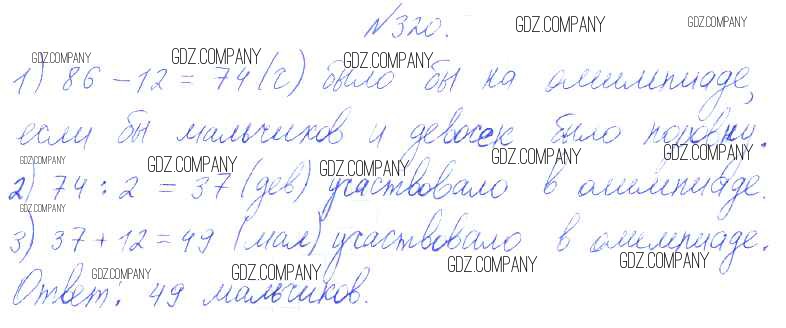 №320.
1) 86 - 12 = 74 (г) было бы на олимпиаде,
если бы мальчиков и девочек было поровну.
2) 74 : 2 = 37 (дев) участвовало в олимпиаде.
3) 37 + 12 = 49 (мал) участвовало в олимпиаде.
Ответ: 49 мальчиков.
GDZ.COMPANY GDZ.COMPANY
GDZ.COMPANY GDZ.COMPANY GDZ.COMPANY
GDZ.COMPANY GDZ.COMPANY GDZ.COMPANY GDZ.COMPANY GDZ.COMPANY
GDZ.COMPANY
GDZ.COMPANY GDZ.COMPANY GDZ.COMPANY GDZ.COMPANY